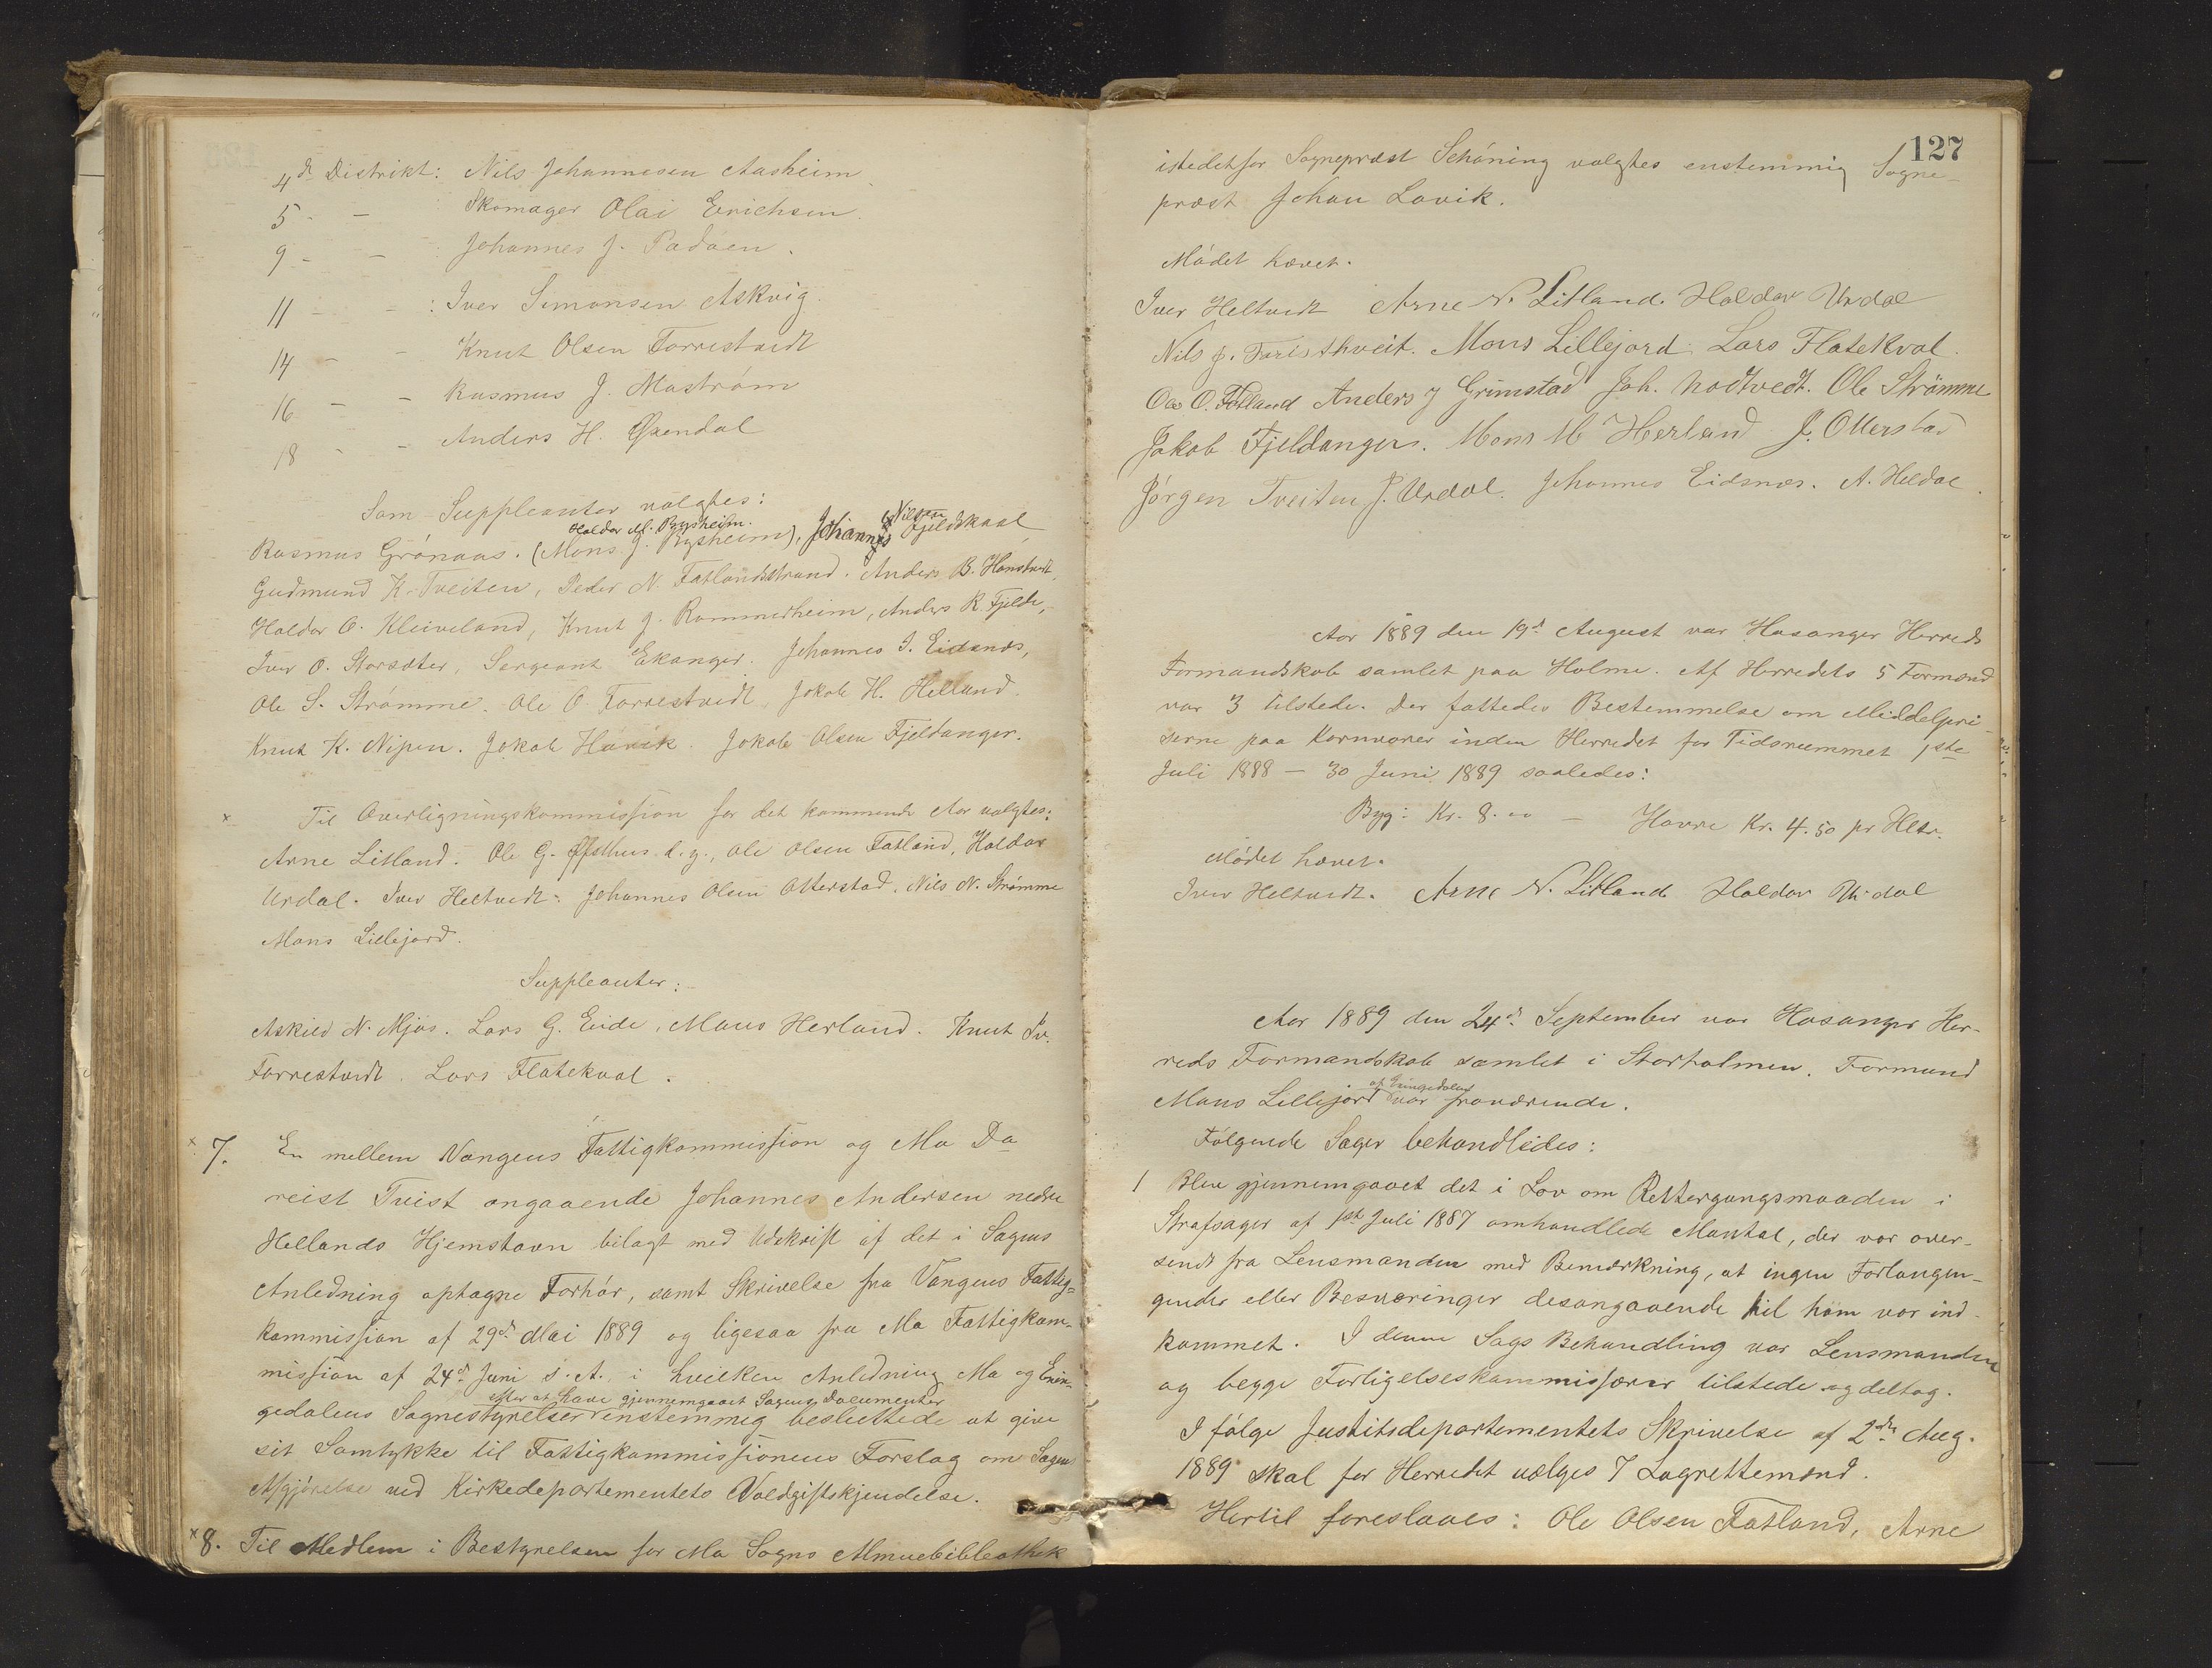 4d Distrikt: Nils Johannesen Aasheim
5 - - Skomager Olai Erichsen.
9 - - Johannes J. Padøen.
11 - - : Iver Simonsen Askvig.
14 - - Knut Olsen Farrestvedt
16 - - Rasmus J. Mastrøm
18 - - Anders H. Øxendal
Som Suppleanter valgtes:
Haldor M. Rysheim. Nilsen
Rasmus Grønaas. (Mons J. Rysheim), Johannes Fjeldskaal
Gudmund K. Tveiten, Peder N. Fatlandsstrand. Anders B. Hanstvedt,
Haldor O. Kleiveland, Knut J. Rammerheim, Anders R. Fjelde,
Iver O. Storsæter, Sergeant Ekanger. Johannes I. Eidsnæs,
Ole S. Strømme. Ole O. Farrestvedt, Jakob H. Helland.
Knut K. Nipen. Jakob Høvik. Jakob Olsen Fjeldanger.
x Til Overligningskommission for det kommende Aar valgtes:
Arne Litland. Ole G. Øfsthus d.y., Ole Olsen Fatland, Haldor
Urdal. Iver Heltvedt. Johannes Olsen Otterstad. Nils N. Strømme
Mons Lillejord.
Suppleanter:
Askild N. Mjøs. Lars G. Eide, Mons Herland. Knut Iv.
Farrestvedt. Lars Flatekval.
x 7. En mellem Vangens Fattigkommission og Mo Da
reist Tvist angaaende Johannes Andersen nedre
Hellands Hjemstavn bilagt med Udskrift af det i Sagens
Anledning optagne Forhør, samt Skrivelse fra Vangens Fattig-
kommission af 29de Mai 1889 og ligesaa fra Mo Fattigkom-
mission af 24de Juni s. A., i hvilken Anledning Mo og Enin-
efter at have gjennemgaaet Sagens Documenter
gedalens Sognestyrelser enstemmig besluttede at give
sit Samtykke til Fattigkommissionens Forslag om Sagens
Afgjørelse ved Kirkedepartementets Voldgiftskjendelse.
x 8. Til Medlem i Bestyrelsen for Mo Sogns Almuebibliothek
127
istedetfor Sognepræst Schøning valgtes enstemmig Sogne-
præst Johan Lavik.
Mødet hævet.
Iver Heltvedt Arne N. Litland. Haldor Urdal
Nils J. Faristhveit. Mons Lillejord. Lars Flatekval.
Ole O. Fatland Anders J Grimstad Joh. Nodtvedt. Ole Strømme
Jakob Fjeldanger. Mons M Herland J. Otterstad
Jørgen Tveiten J. Urdal. Johannes Eidsnæs. A. Heldal.
Aar 1889 den 19de August var Hosanger Herreds
Formandskab samlet paa Holme. Af Herredets 5 Formænd
var 3 tilstede. Der fattedes Bestemmelse om Middelpri-
serne paa Kornvarer inden Herredet for Tidsrummet 1ste
Juli 1888 — 30 Juni 1889 saaledes:
Byg: Kr. 8.00 — Havre Kr. 4.50 pr Hltr.
Mødet hævet.
Iver Heltvedt. Arne N. Litland Haldor Urdal
Aar 1889 den 24de September var Hosanger Her-
reds Formandskab samlet i Storholmen. Formand
af Eningedalen
Mons Lillejord var fraværende.
Følgende Sager behandledes:
1 Blev gjennemgaaet det i Lov om Rettergangsmaaden i
Strafsager af 1ste Juli 1887 omhandlede Mantal, der var over-
sendt fra Lensmanden med Bemærkning, at ingen Forlangen-
gender eller Besværinger desangaaende til ham var ind-
kommet. I denne Sags Behandling var Lensmanden
og begge Forligelseskommissærer tilstede og deltog.
I følge Justitsdepartementets Skrivelse af 2den Aug.
1889 skal for Herredet vælges 7 Lagrettemænd.
Hertil foreslaaes: Ole Olsen Fatland, Arne